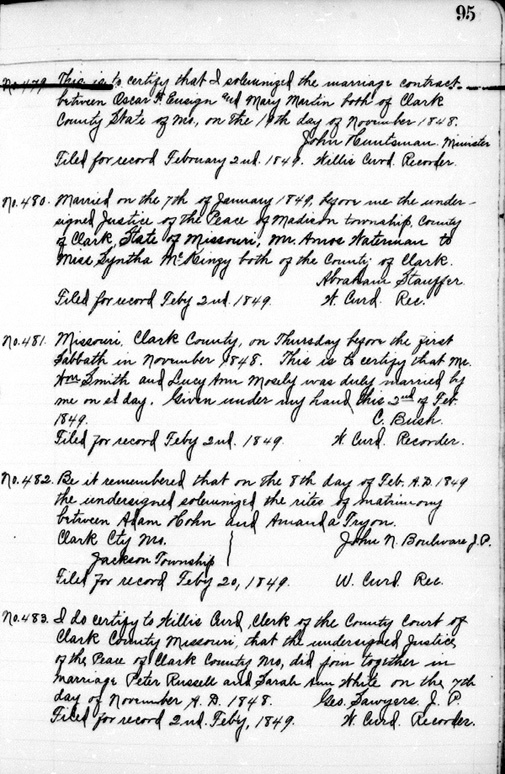 95
No. 479. This is to certify that I solemnized the marriage contract
between Oscar H. Ensign and Mary Martin both of Clark
County State of Mo., on the 19th day of November 1848.
John Huntsman. Minister
Filed for record February 2nd. 1849. Willis Curd. Recorder.
No. 480. Married on the 7th of January 1849, before me the under-
signed Justice of the Peace of Madison township, County
of Clark, State of Missouri, Mr. Amos Waterman to
Miss Syntha McKingy both of the County of Clark.
Abraham Stauffer.
Filed for record Feby 2nd. 1849. W. Curd. Rec.
No. 481. Missouri, Clark County, on Thursday before the first
Sabbath in November 1848. This is to certify that Mr.
Wm Smith and Lucy Ann Mosely was duly married by
me on sd day. Given under my hand this 2nd of Feb.
1849. C. Bush.
Filed for record Feby 2nd. 1849. W. Curd. Recorder.
No. 482. Be it remembered that on the 8th day of Feb. A.D. 1849
the undersigned solemnized the rites of matrimony
between Adam Hohn and Amanda Tryon.
Clark Cty Mo. John N. Boulware J.P.
Jackson Township
Filed for record Feby 20, 1849. W. Curd. Rec.
No. 483. I do certify to Willis Curd, Clerk of the County Court of
Clark County Missouri, that the undersigned Justice
of the Peace of Clark County Mo, did join together in
marriage Peter Russell and Sarah Ann White on the 7th
day of November A.D. 1848. Geo. Sawyers, J. P.
Filed for record 2nd. Feby, 1849. W. Curd. Recorder.